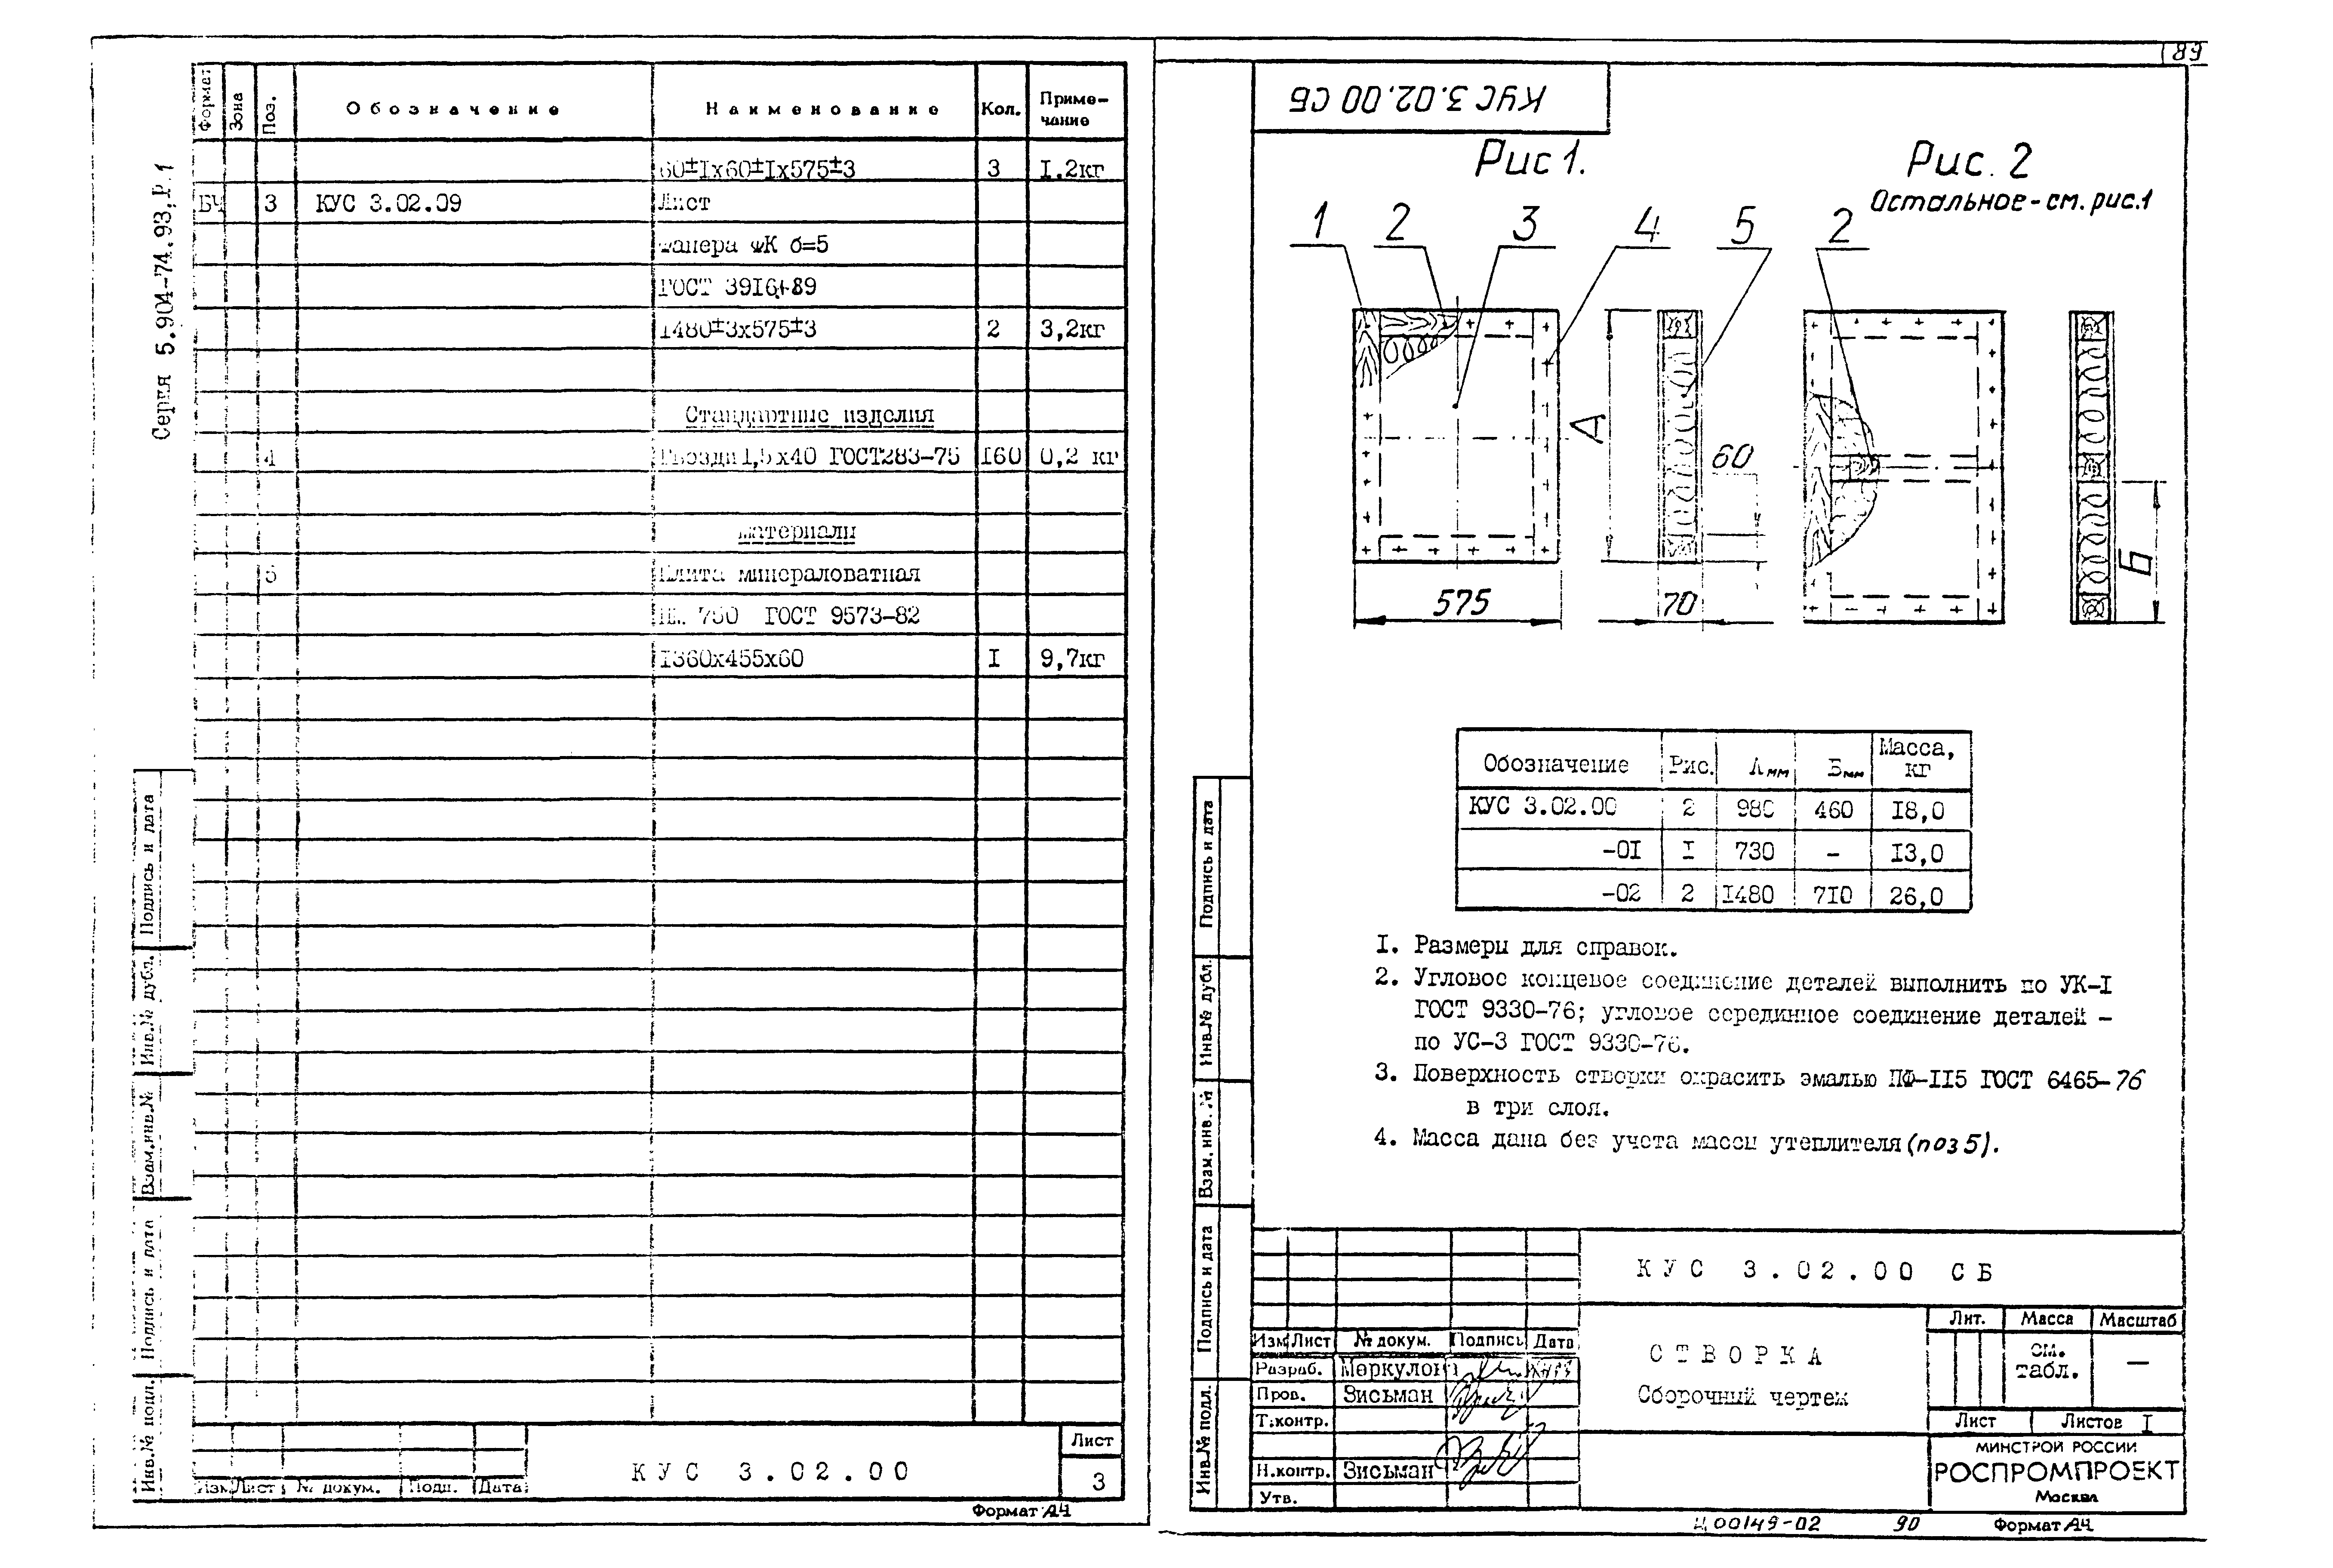 Серия 5.904-74.93, Р 1
Формат Зона Поз. Обозначение Наименование Кол. Приме-чание
60±1х60±1х575±3 3 1.2кг
БЧ 3 КУС 3.02.09 Лист
Фанера ФК б=5
ГОСТ 3916.1-89
1480±3х575±3 2 3,2кг
Стандартные изделия
4 Гвозди 1,5х40 ГОСТ283-75 160 0,2 кг
Материалы
5 Плита минераловатная
750 ГОСТ 9573-82
1360х455х60 1 9,7кг
Подпись и дата
Инв.№ дубл.
Взам.инв.№
Подпись и дата
Инв.№ подл.
Изм Лист № докум. Подп. Дата
КУС 3.02.00
Лист
3
Формат А4
89
КУС 3.02.00 СБ
Рис 1.
Рис. 2
Остальное - см. рис.1
1 2 3 4 5 2
А
60
Б
575
70
Обозначение Рис. А мм Б мм Масса, кг
КУС 3.02.00 2 980 460 18,0
-01 1 730 - 13,0
-02 2 1480 710 26,0
1. Размеры для справок.
2. Угловое концевое соединение деталей выполнить по УК-1
ГОСТ 9330-76; угловое серединное соединение деталей -
по УС-3 ГОСТ 9330-76.
3. Поверхность створки окрасить эмалью ПФ-115 ГОСТ 6465-76
в три слоя.
4. Масса дана без учета массы утеплителя (поз 5).
Подпись и дата
Инв.№ дубл.
Взам. инв. №
Подпись и дата
Инв.№ подл.
КУС 3.02.00 СБ
Изм Лист № докум. Подпись Дата
Разраб. Меркулова
Пров. Зисьман
Т.контр.
Н.контр. Зисьман
Утв.
СТВОРКА
Сборочный чертеж
Лит. Масса Масштаб
см. табл. —
Лист Листов 1
МИНСТРОЙ РОССИИ
РОСПРОМПРОЕКТ
Москва
Ц00149-02 90 Формат А4